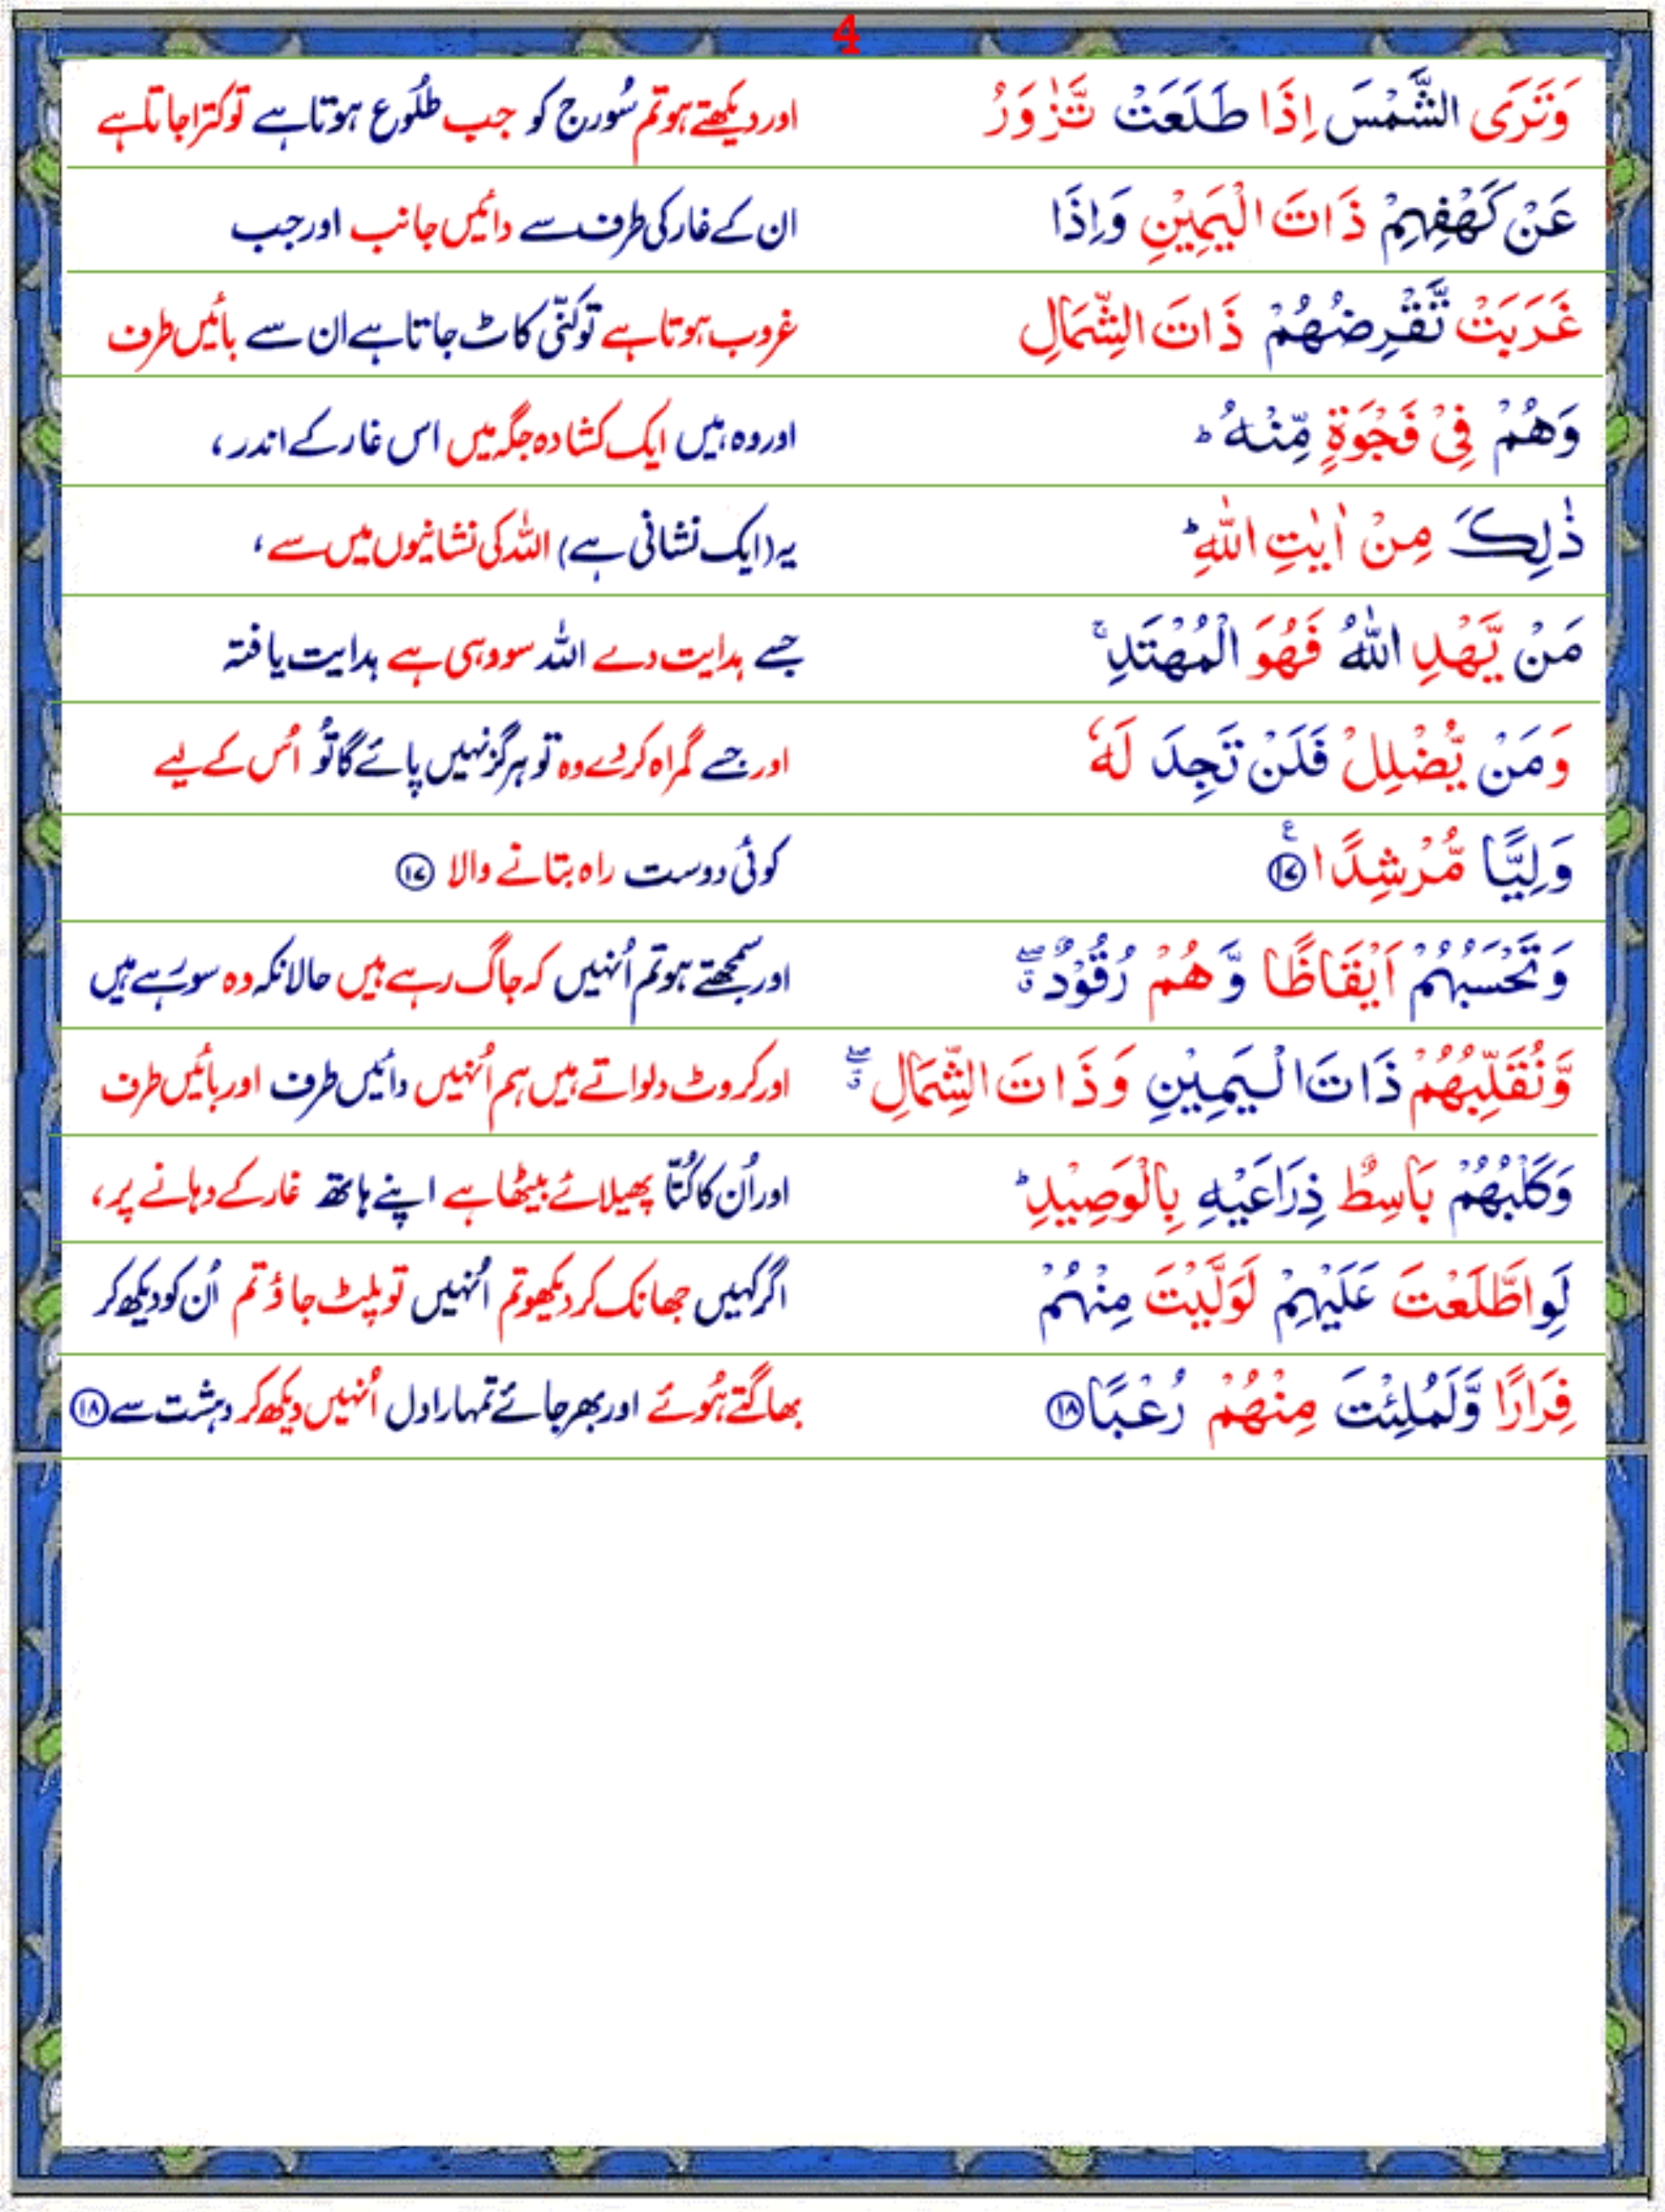 4
وَتَرَى الشَّمْسَ اِذَا طَلَعَتْ تَّزٰوَرُ اور دیکھتے ہو تم سُورج کو جب طلُوع ہوتا ہے تو کترا جاتا ہے
عَنْ كَهْفِهِمْ ذَاتَ الْيَمِيْنِ وَاِذَا ان کے غار کی طرف سے دائیں جانب اور جب
غَرَبَتْ تَّقْرِضُهُمْ ذَاتَ الشِّمَالِ غروب ہوتا ہے تو کنّی کاٹ جاتا ہے ان سے بائیں طرف
وَهُمْ فِىْ فَجْوَةٍ مِّنْهُ ؕ اور وہ ہیں ایک کشادہ جگہ میں اس غار کے اندر،
ذٰلِكَ مِنْ اٰيٰتِ اللّٰهِ ؕ یہ (ایک نشانی ہے) اللہ کی نشانیوں میں سے،
مَنْ يَّهْدِ اللّٰهُ فَهُوَ الْمُهْتَدِ ۚ جسے ہدایت دے اللہ سو وہی ہے ہدایت یافتہ
وَمَنْ يُّضْلِلْ فَلَنْ تَجِدَ لَهٗ اور جسے گمراہ کردے وہ تو ہرگز نہیں پائے گا تُو اُس کے لیے
وَلِيًّا مُّرْشِدًا ۧ‏﴿۱۷﴾ کوئی دوست راہ بتانے والا ﴿۱۷﴾
وَتَحْسَبُهُمْ اَيْقَاظًا وَّهُمْ رُقُوْدٌ ۖۗ اور سمجھتے ہو تم اُنہیں کہ جاگ رہے ہیں حالانکہ وہ سو رہے ہیں
وَّنُقَلِّبُهُمْ ذَاتَ الْيَمِيْنِ وَ ذَاتَ الشِّمَالِ ۖۗ اور کروٹ دلواتے ہیں ہم اُنہیں دائیں طرف اور بائیں طرف
وَكَلْبُهُمْ بَاسِطٌ ذِرَاعَيْهِ بِالْوَصِيْدِ ؕ اور اُن کا کُتّا پھیلائے بیٹھا ہے اپنے ہاتھ غار کے دہانے پر،
لَوِ اطَّلَعْتَ عَلَيْهِمْ لَوَلَّيْتَ مِنْهُمْ اگر کہیں جھانک کر دیکھو تم اُنہیں تو پلٹ جاؤ تم اُن کو دیکھ کر
فِرَارًا وَّلَمُلِئْتَ مِنْهُمْ رُعْبًا ﴿۱۸﴾ بھاگتے ہُوئے اور بھر جائے تمہارا دل اُنہیں دیکھ کر دہشت سے ﴿۱۸﴾